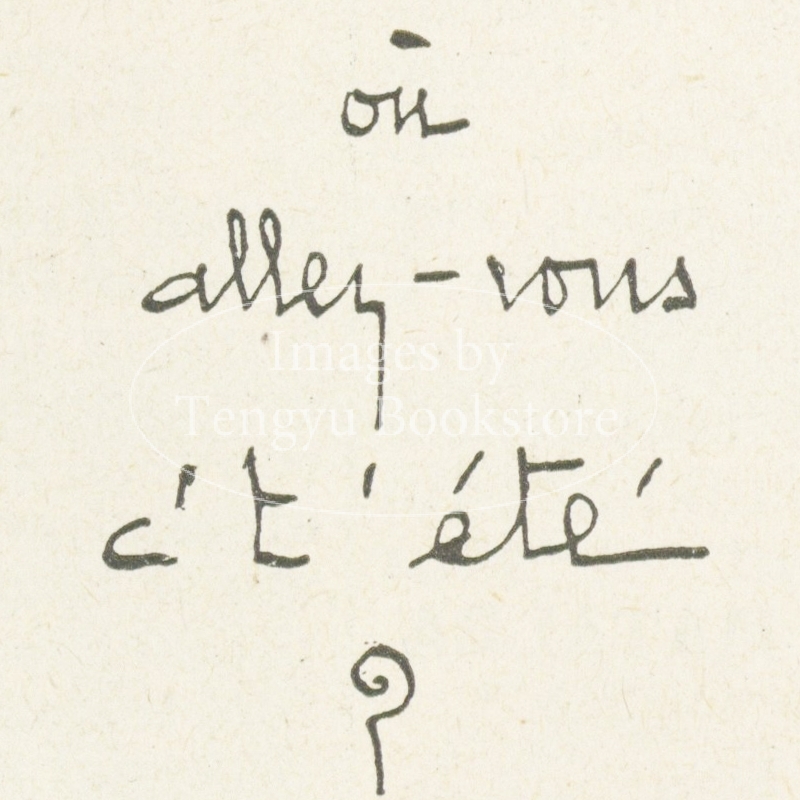 où
allez-vous
Images by
Tengyu Bookstore
c't'été
?